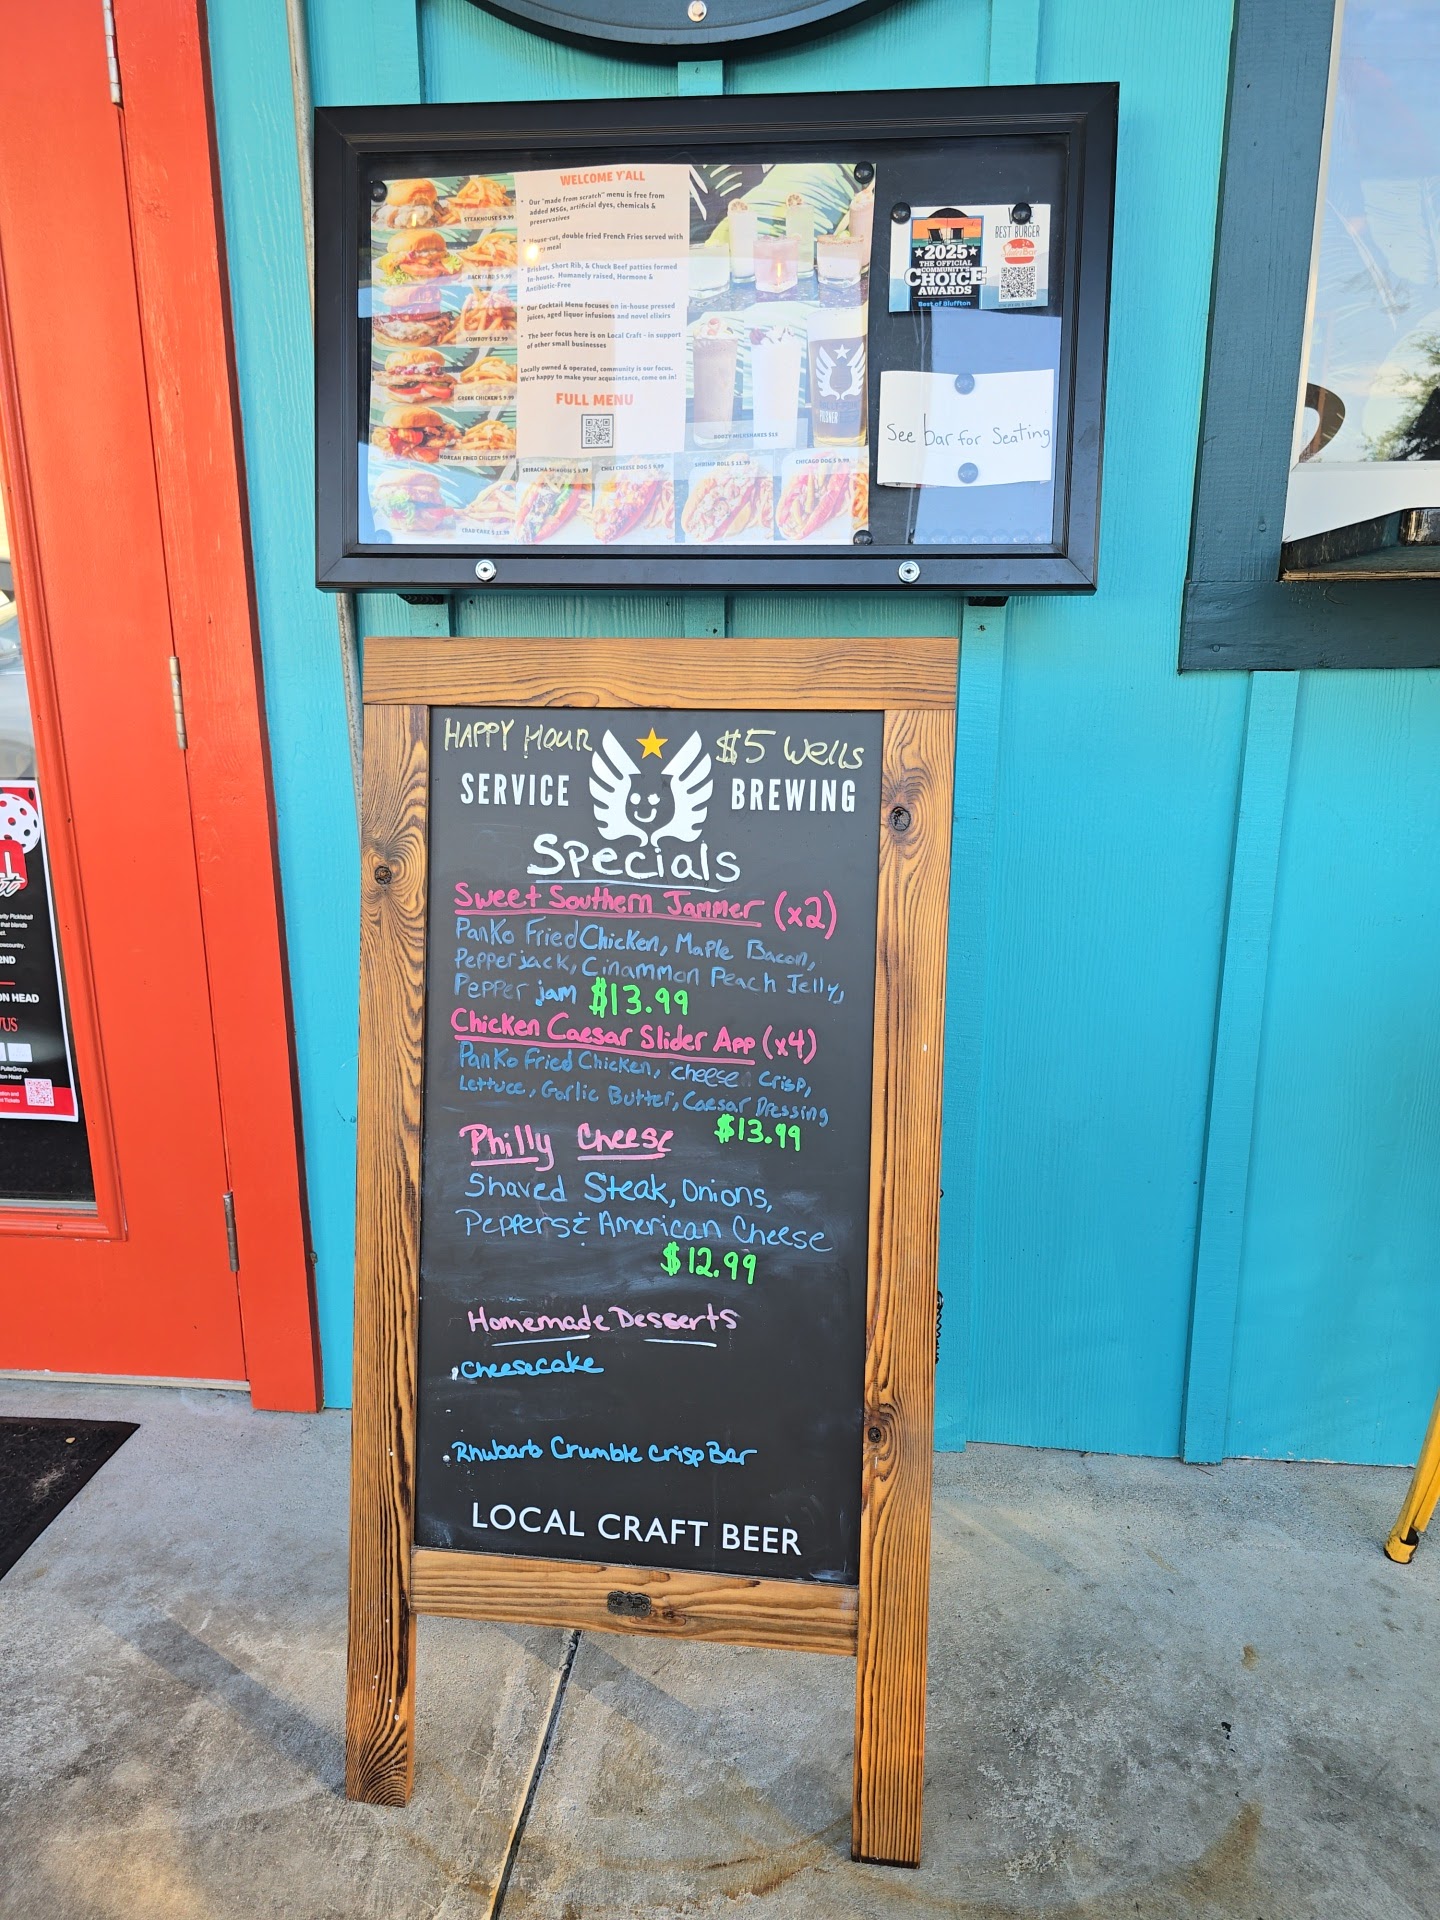 WELCOME Y'ALL
• Our "made from scratch" menu is free from
added MSGs, artificial dyes, chemicals &
preservatives
• House-cut, double fried French Fries served with
meal
• Brisket, Short Rib, & Chuck Beef patties formed
in-house. Humanely raised, Hormone &
Antibiotic-Free
• Our Cocktail Menu focuses on in-house pressed
juices, aged liquor infusions and novel elixirs
• The beer focus here is on Local Craft - in support
of other small businesses
Locally owned & operated, community is our focus.
We're happy to make your acquaintance, come on in!
FULL MENU
STEAKHOUSE $ 9.99
BACKYARD $ 9.99
COWBOY $ 12.99
GREEK CHICKEN $ 9.99
KOREAN FRIED CHICKEN $9.99
CRAB CAKE $ 12.99
SRIRACHA $ 9.99
CHILI CHEESE DOG $ 9.99
SHRIMP ROLL $ 12.99
CHICAGO DOG $ 9.99
BOOZY MILKSHAKES $15
PILSNER
2025
THE OFFICIAL
COMMUNITY'S
CHOICE
AWARDS
Best of Bluffton
BEST BURGER
See bar for Seating
HAPPY HOUR $5 Wells
SERVICE BREWING
Specials
Sweet Southern Jammer (x2)
Panko Fried Chicken, Maple Bacon,
Pepperjack, Cinammon Peach Jelly,
Pepper jam $13.99
Chicken Caesar Slider App (x4)
Panko Fried Chicken, cheese crisp,
Lettuce, Garlic Butter, Caesar Dressing
$13.99
Philly Cheese
Shaved Steak, Onions,
Peppers & American Cheese
$12.99
Homemade Desserts
. Cheesecake
. Rhubarb Crumble Crisp Bar
LOCAL CRAFT BEER
2ND
ON HEAD